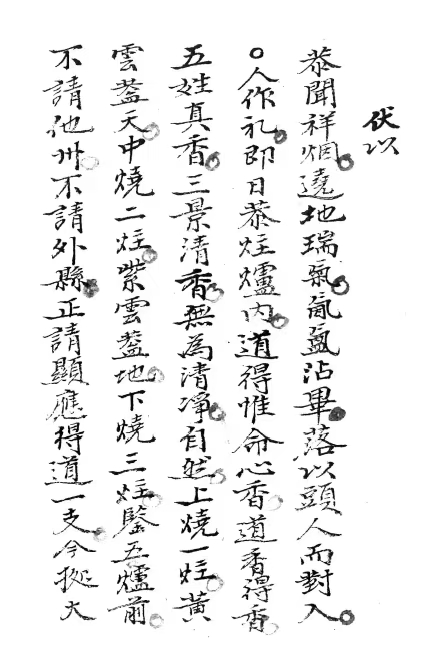 伏以
恭聞祥烟遶地瑞氣氤氳沾畢落以頭人而對入
○人作礼即日恭炷爐内道得惟命心香道香得香
五姓真香三景清香無為清凈自然上燒一炷黃
雲蓋天中燒二炷紫雲蓋地下燒三炷鑒五爐前
不請他州不請外縣正請顯應得道一支今擬大